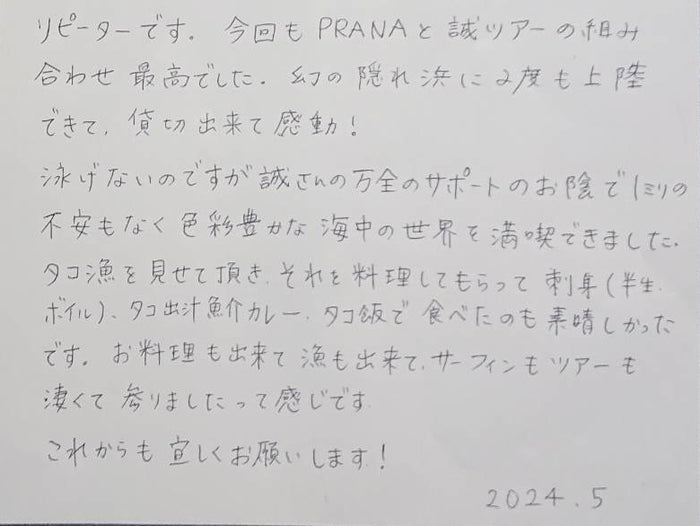 リピーターです. 今回も PRANAと 誠ツアーの組み
合わせ 最高でした. 幻の 隠れ浜に 2度も上陸
できて, 貸切出来て感動!
泳げないのですが誠さんの万全のサポートのお陰で1ミリの
不安もなく 色彩豊かな 海中の世界を満喫できました.
タコ漁を見せて頂き, それを料理してもらって 刺身(半生,
ボイル)、タコ出汁魚介カレー, タコ飯で 食べたのも素晴しかった
です. お料理も出来て 漁も出来て, サーフィンもツアーも
凄くて 参りましたって感じです.
これからも 宜しくお願いします!
2024.5